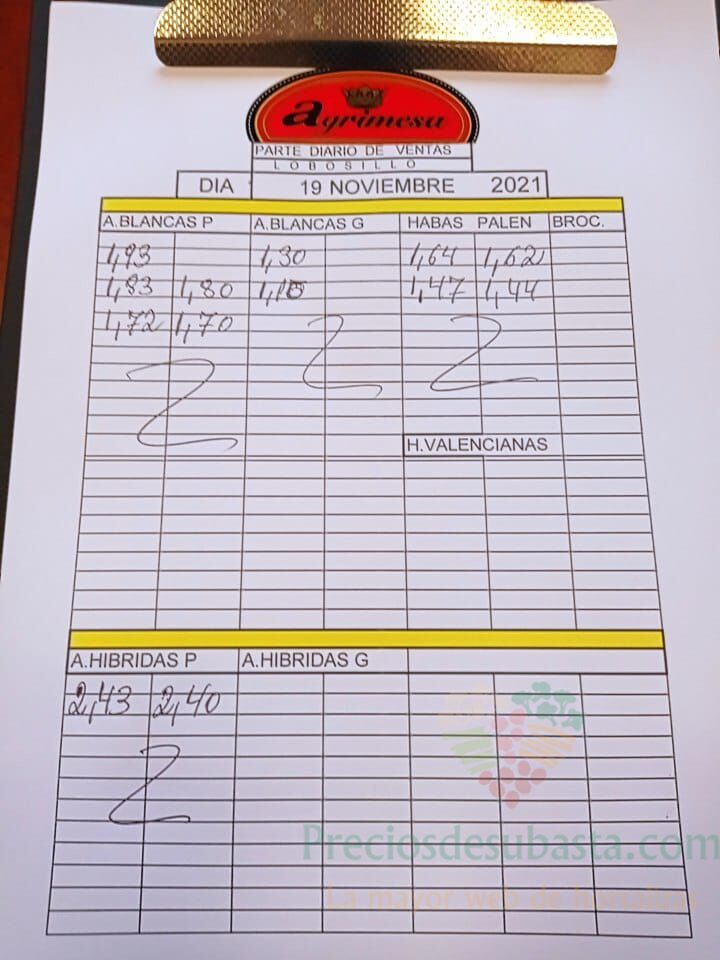 agrimesa
PARTE DIARIO DE VENTAS
LOBOSILLO
DIA 19 NOVIEMBRE 2021
A.BLANCAS P A.BLANCAS G HABAS PALEN BROC.
1,93 1,30 1,64 1,62
1,83 1,80 1,47 1,44
1,72 1,70
H.VALENCIANAS
A.HIBRIDAS P A.HIBRIDAS G
2,43 2,40
Preciosdesubasta.com
La mayor web de hortalizas